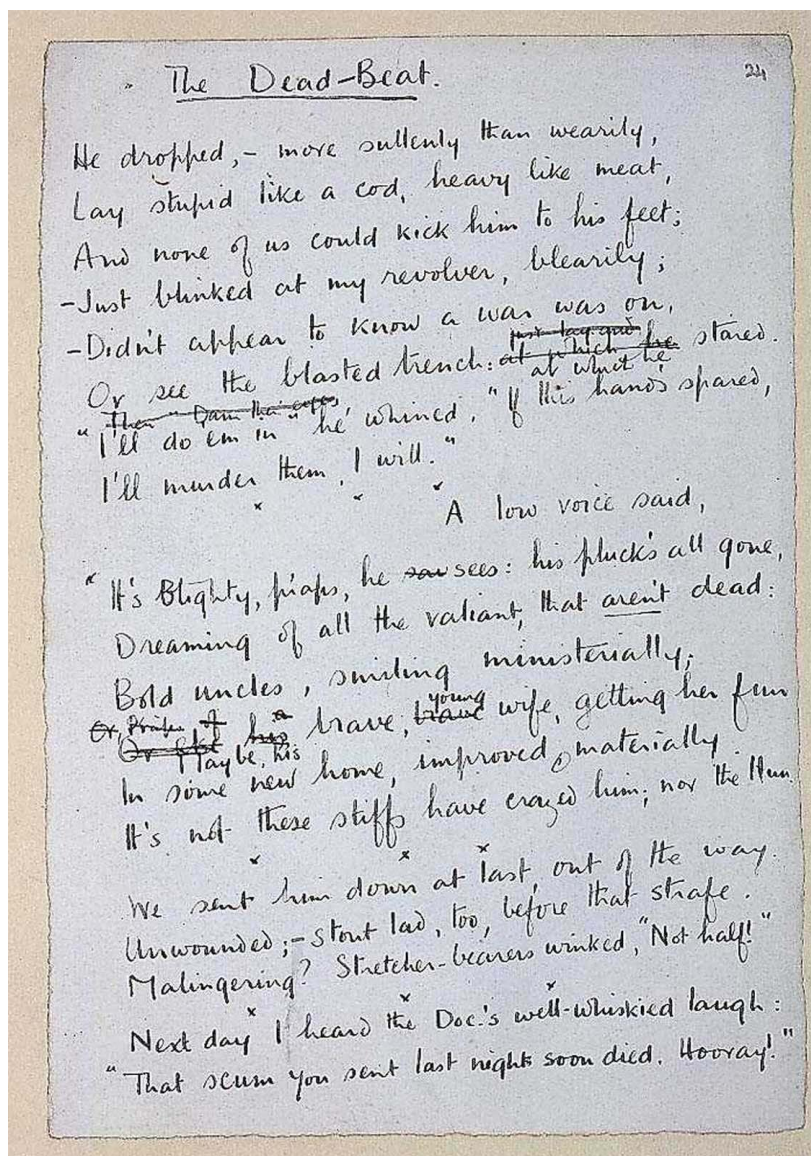 The Dead-Beat.
24
He dropped,- more sullenly than wearily,
Lay stupid like a cod, heavy like meat,
And none of us could kick him to his feet;
-Just blinked at my revolver, blearily;
-Didn't appear to know a war was on,
just lay and
Or see the blasted trench: at which he stared.
at what he
Then
"I'll do 'em in" he whined. "If this hand's spared,
I'll murder them, I will."
x x x
A low voice said,
"It's Blighty, p'raps, he saw sees: his pluck's all gone,
Dreaming of all the valiant, that aren't dead:
Bold uncles, smiling ministerially;
Or, of a young
Or his brave, brave wife, getting her fun
Maybe, his
In some new home, improved materially.
It's not these stiffs have crazed him; nor the Hun.
x x x
We sent him down at last, out of the way.
Unwounded;-stout lad, too, before that strafe.
Malingering? Stretcher-bearers winked, "Not half!"
x x x
Next day I heard the Doc.'s well-whiskied laugh:
"That scum you sent last night soon died. Hooray!"